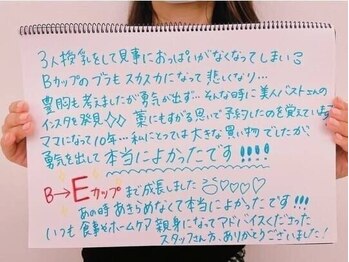 3人授乳をして見事におっぱいがなくなってしまい
Bカップのブラもスカスカになって悲しくなり…
豊胸も考えましたが勇気が出ず…そんな時に美人バストさんの
インスタを発見◇◇ 藁にもすがる思いで予約したのを覚えています
ママになって10年…私にとっては大きな買い物でしたが、
勇気を出して本当によかったです!!!!
B→Eカップまで成長しました♡♡♡♡
あの時あきらめなくて本当によかったです!!!
いつも食事やホームケア親身になってアドバイスくださった
スタッフさん方、ありがとうございました!